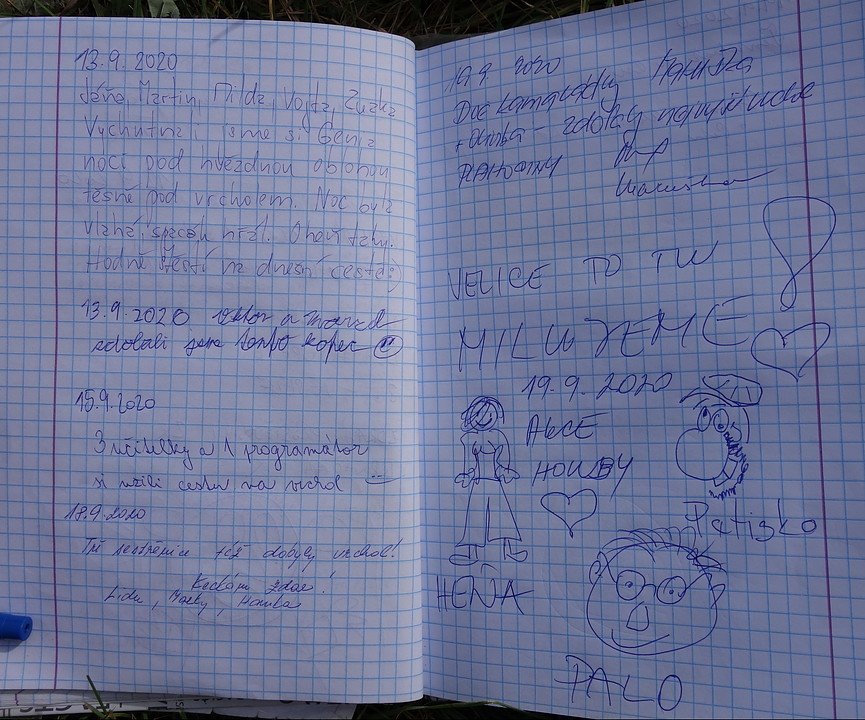 13.9.2020
Jána, Martin, Milda, Vojta, Zuzka
Vychutnali jsme si
noci pod hvězdnou oblohou
těsně pod vrcholem. Noc byla
vlhká, spacák hřál.
Hodně štěstí na dnešní cestě :)
13.9.2020 Viktor a
zdolali jsme tento kopec
15.9.2020
3 učitelky a 1 programátor
si užili cestu na vrchol
18.9.2020
Tři sestřenice též dobyly vrchol!
zdar!
Lída, Hanka
19.9 2020 Maruška
Dvě kamarádky
zdolaly nejvyšší
VELICE TO TU
MILUJEME
19.9.2020
AKCE
HOUBY
Patisko
HEŇA
PALO